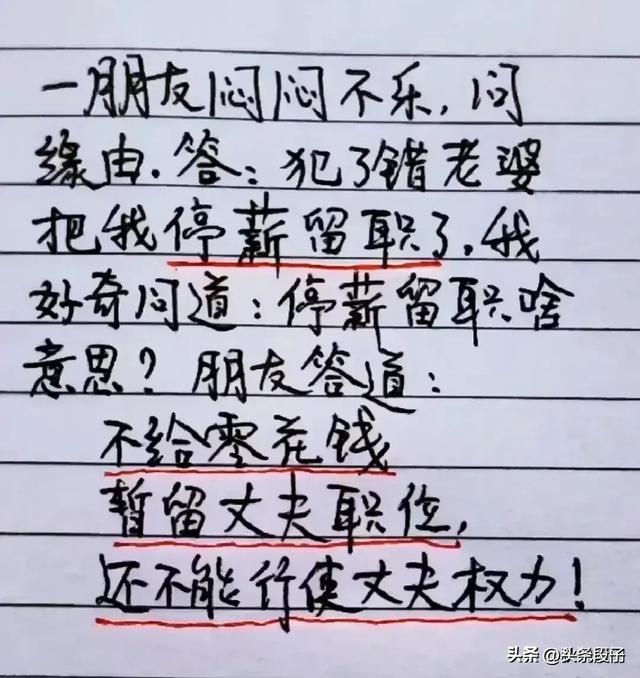 一朋友闷闷不乐,问
缘由.答:犯了错老婆
把我停薪留职了,我
好奇问道:停薪留职啥
意思?朋友答道:
不给零花钱
暂留丈夫职位,
还不能行使丈夫权力!
头条 @头条段子